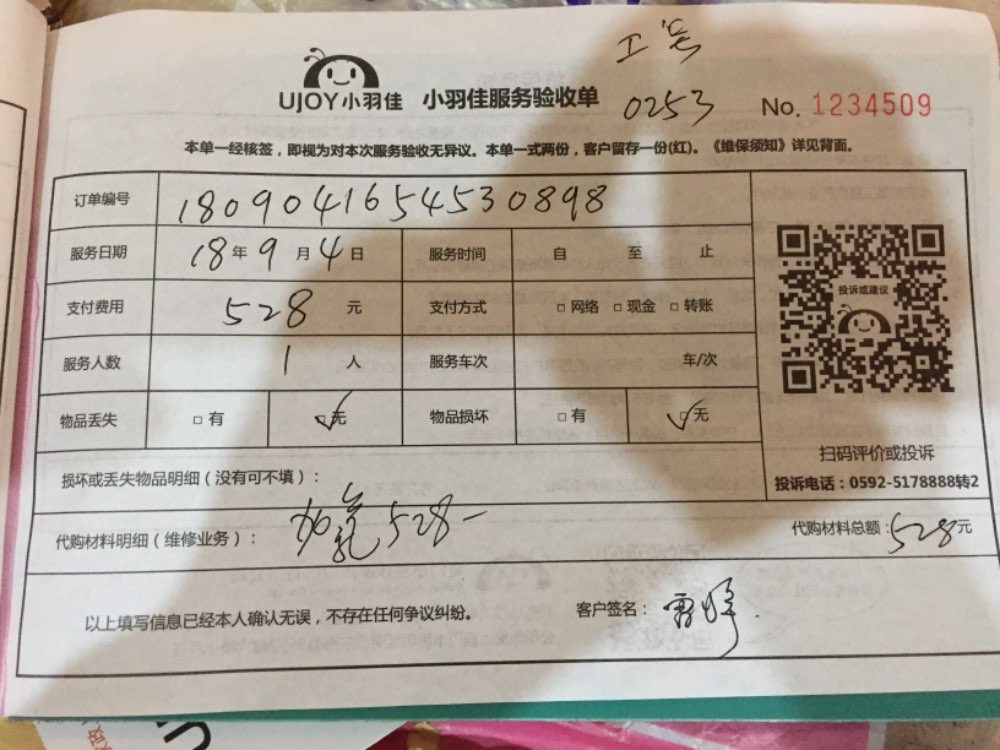 工号
UJOY小羽佳 小羽佳服务验收单 0253 No. 1234509
本单一经核签，即视为对本次服务验收无异议。本单一式两份，客户留存一份(红)。《维保须知》详见背面。
订单编号 18090416545530898
服务日期 18年9月4日 服务时间 自 至 止
支付费用 528 元 支付方式 □网络 □现金 □转账
投诉或建议
服务人数 1 人 服务车次 车/次
物品丢失 □有 ☑无 物品损坏 □有 ☑无
扫码评价或投诉
损坏或丢失物品明细（没有可不填）：
投诉电话：0592-5178888转2
代购材料明细（维修业务）： 加氧 528一 代购材料总额：528元
以上填写信息已经本人确认无误，不存在任何争议纠纷。 客户签名：